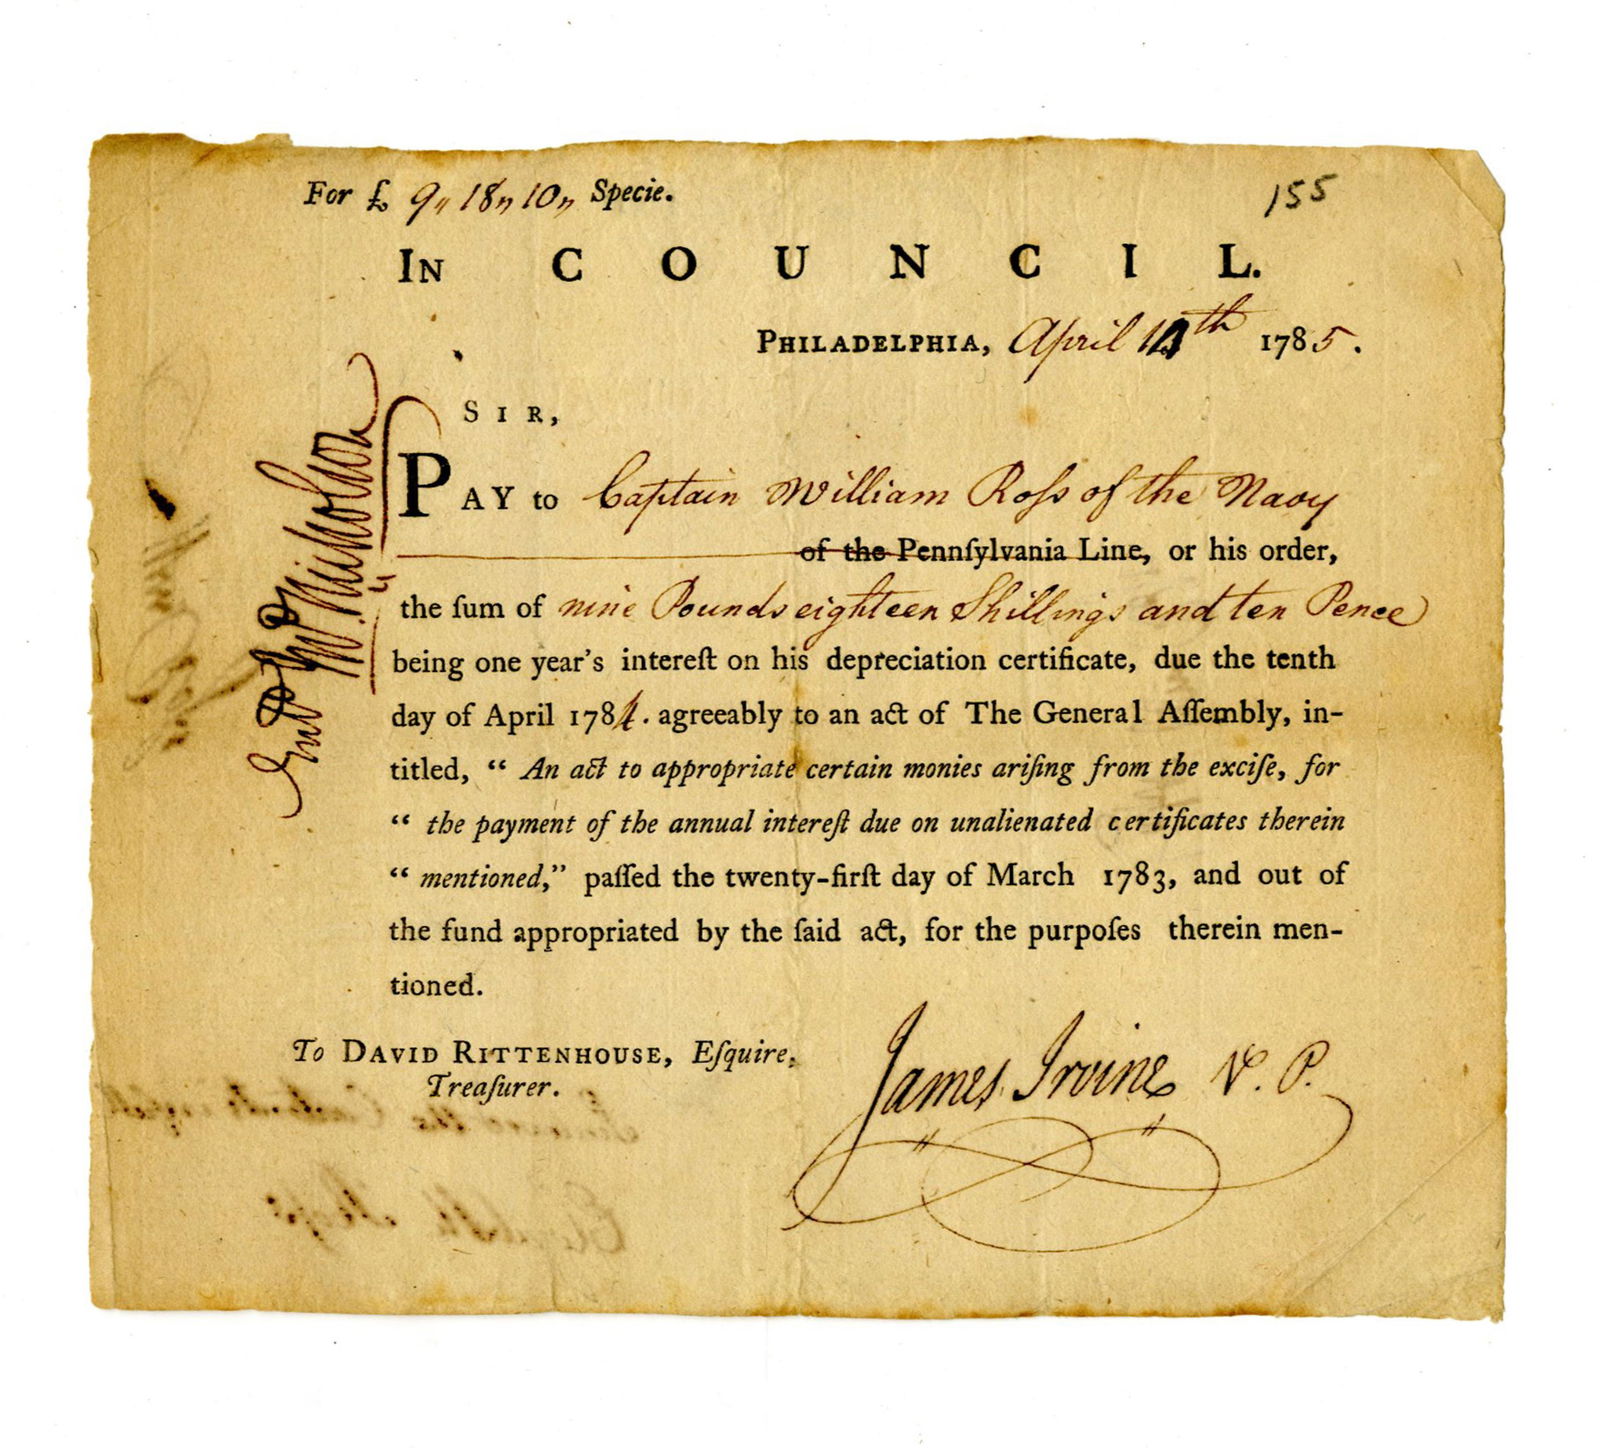 For £ 9,, 18,, 10,, Specie.
155
IN COUNCIL.
PHILADELPHIA, April 14th 1785.
SIR,
PAY to Captain William Roſs of the Navy
of the Pennſylvania Line, or his order,
the ſum of nine Pounds eighteen Shillings and ten Pence
being one year's intereſt on his depreciation certificate, due the tenth
day of April 1784. agreeably to an act of The General Aſſembly, in-
titled, “ An act to appropriate certain monies ariſing from the exciſe, for
“ the payment of the annual intereſt due on unalienated certificates therein
“ mentioned,” paſſed the twenty-firſt day of March 1783, and out of
the fund appropriated by the ſaid act, for the purpoſes therein men-
tioned.
To DAVID RITTENHOUSE, Eſquire,
Treaſurer.
James Irvine V. P.
Nicholson